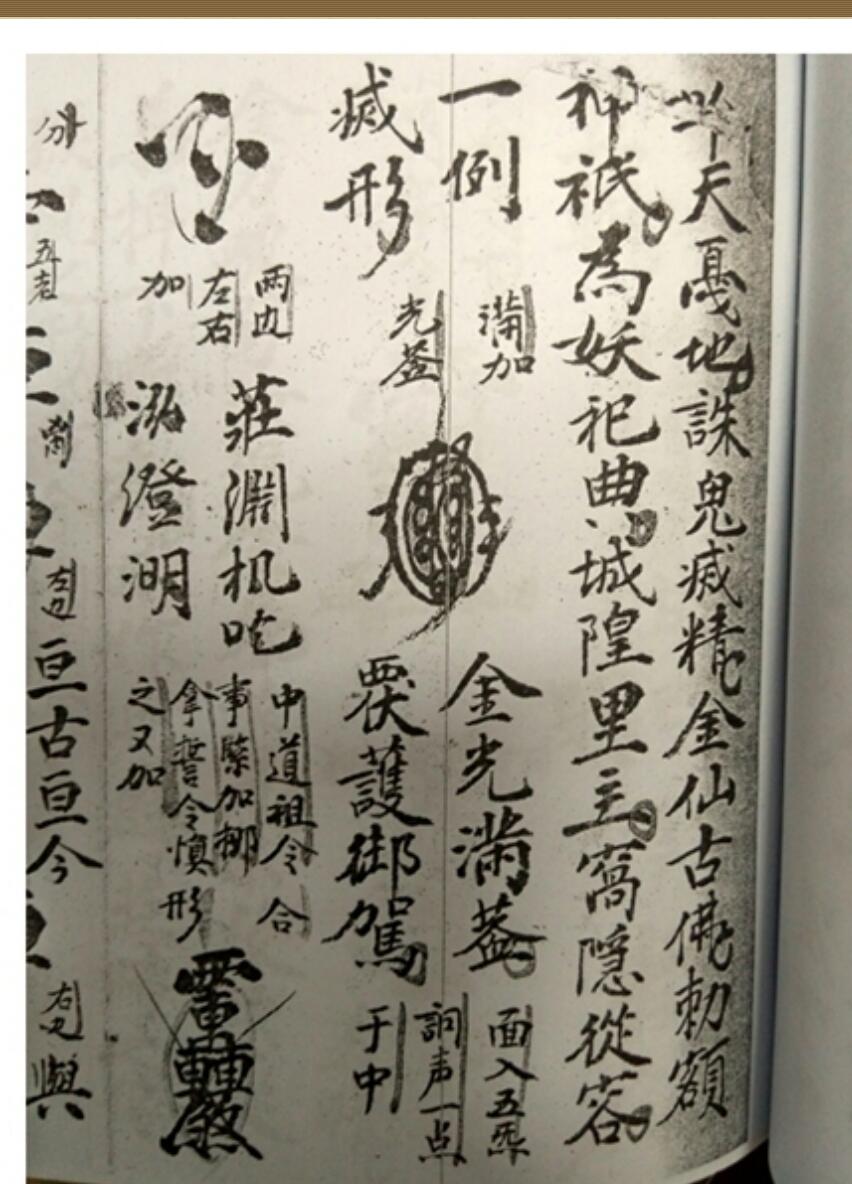 天戛地誅鬼滅精金仙古佛勅額
神祇為妖祀典城隍里主窩隱從容
一例
滅形
滿加
光蓋
金光滿蓋
覆護御駕
面入五炁
詞声一点
于中
兩边
左右
加
莊淵机吃
泓澄湖
中道祖令合
事繫加挪
拿誓令慎形
之又加
分
五老
右边
亘古亘今
與